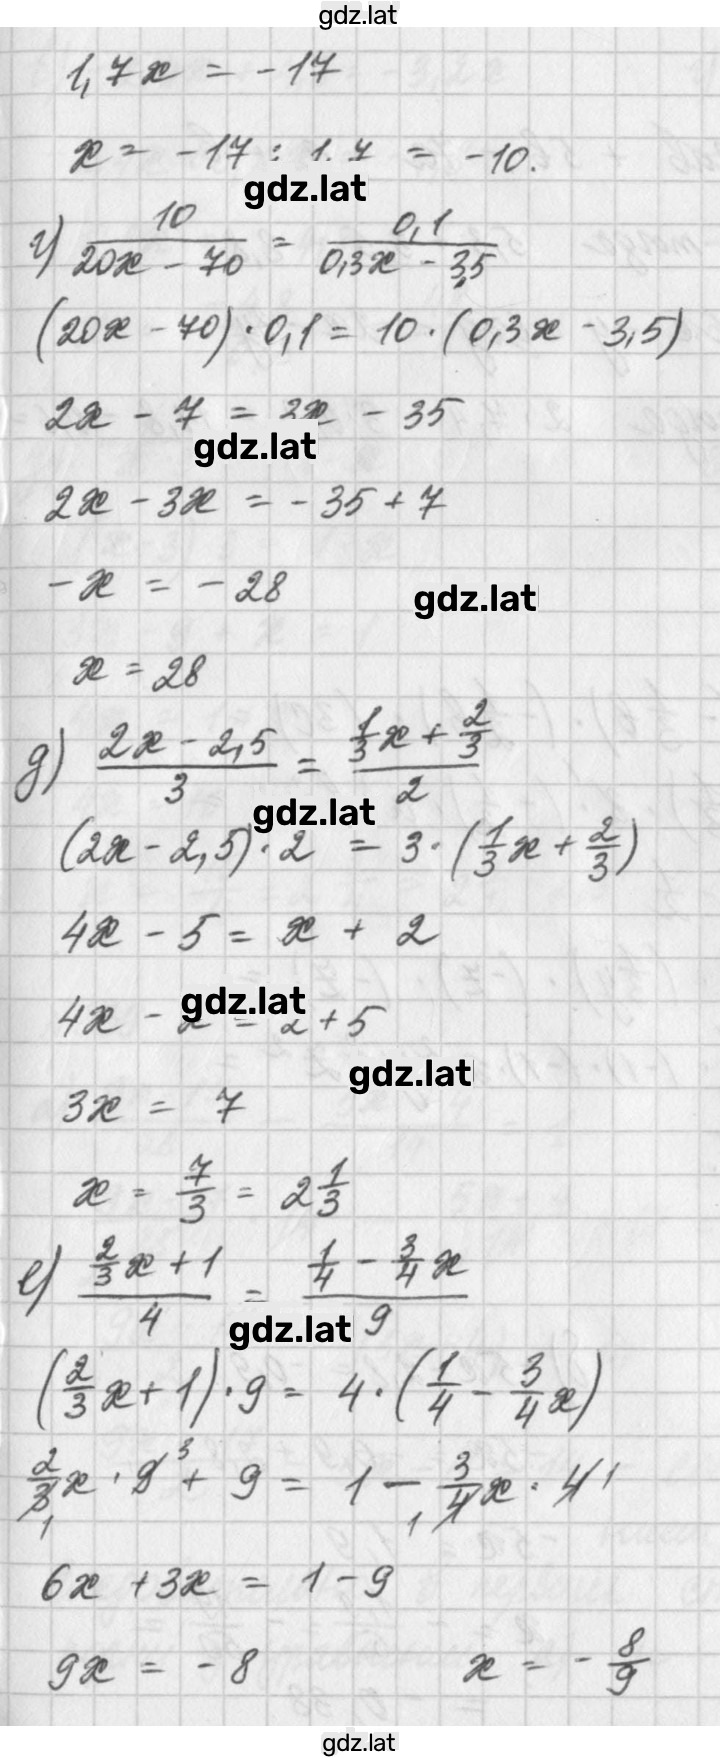 gdz.lat
1,7x = -17
x = -17 : 1,7 = -10.
gdz.lat
г) 10/(20x - 70) = 0,1/(0,3x - 3,5)
(20x - 70) · 0,1 = 10 · (0,3x - 3,5)
2x - 7 = 3x - 35
gdz.lat
2x - 3x = -35 + 7
-x = -28
gdz.lat
x = 28
д) (2x - 2,5)/3 = (1/3 x + 2/3)/2
gdz.lat
(2x - 2,5) · 2 = 3 · (1/3 x + 2/3)
4x - 5 = x + 2
gdz.lat
4x - x = 2 + 5
gdz.lat
3x = 7
x = 7/3 = 2 1/3
е) (2/3 x + 1)/4 = (1/4 - 3/4 x)/9
gdz.lat
(2/3 x + 1) · 9 = 4 · (1/4 - 3/4 x)
2/3 x · 9 + 9 = 1 - 3/4 x · 4
6x + 3x = 1 - 9
9x = -8 x = -8/9
gdz.lat